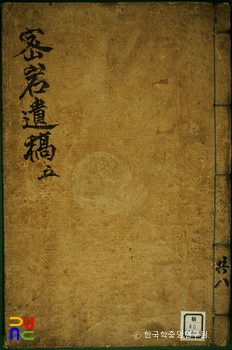 密岩遺稿 五
共八
ⓒ 한국학중앙연구원